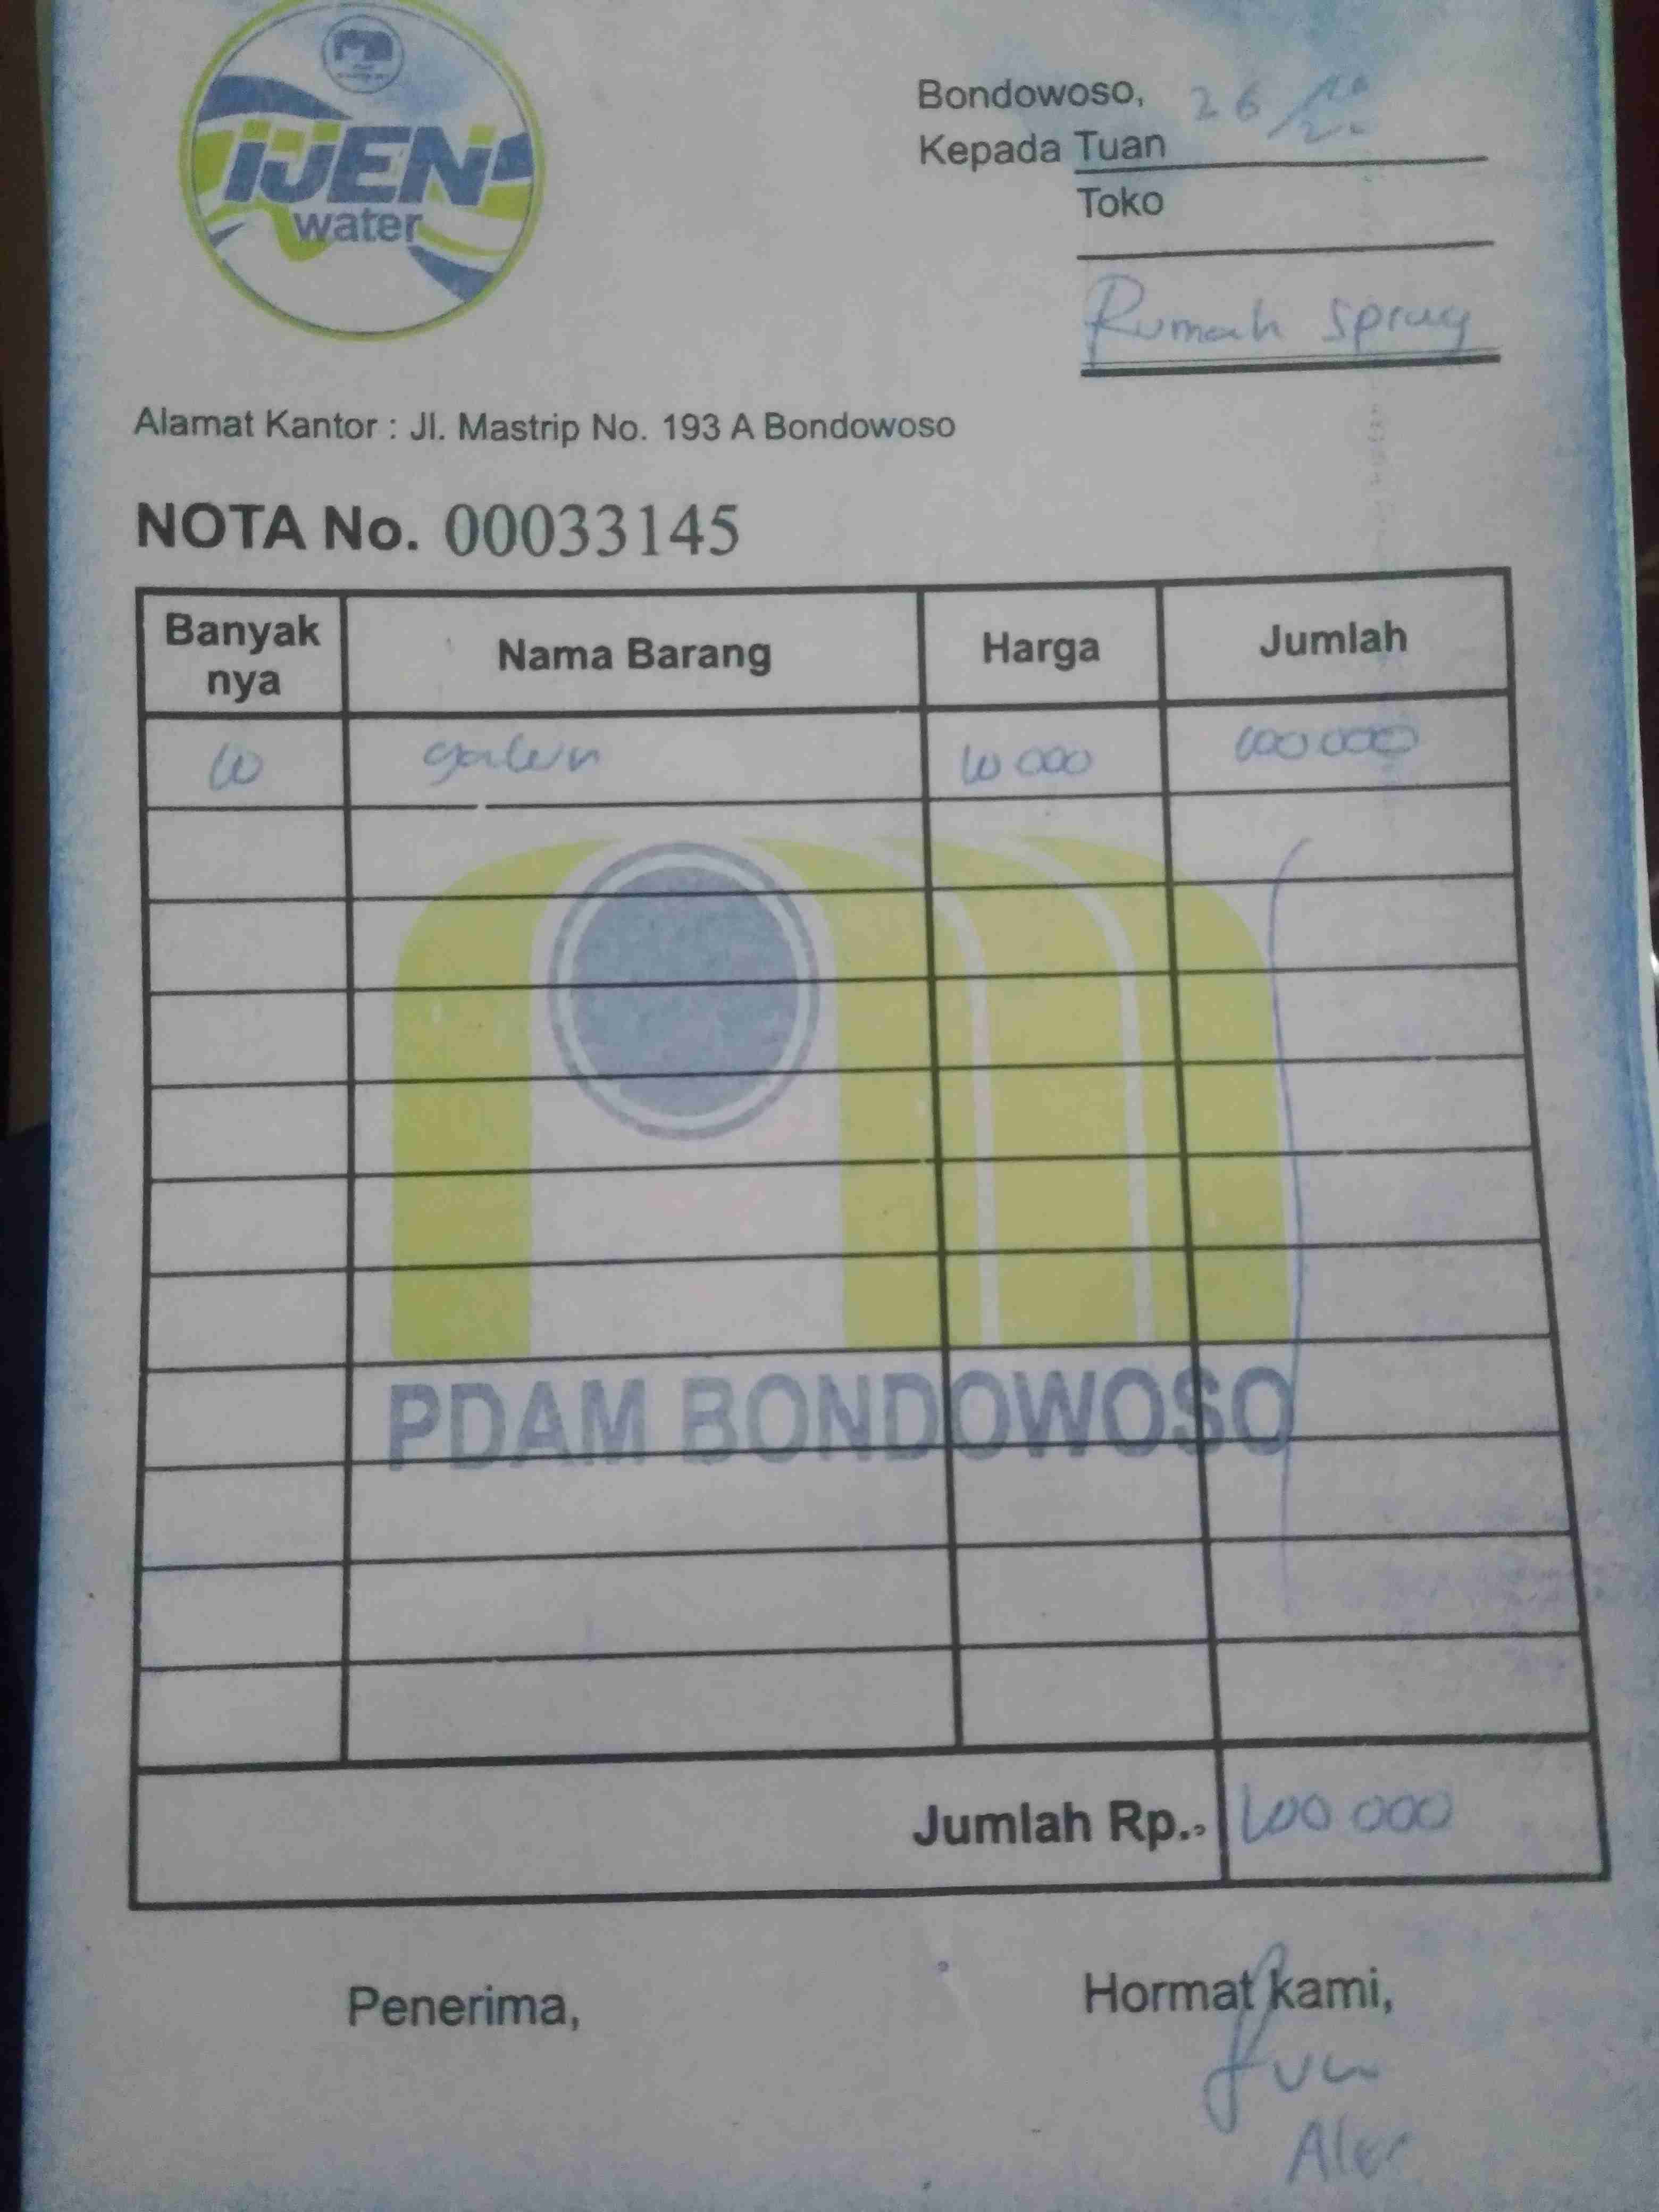 IJEN
water
Bondowoso, 26/10
Kepada Tuan
Toko
Rumah Spray
Alamat Kantor : Jl. Mastrip No. 193 A Bondowoso
NOTA No. 00033145
Banyak nya Nama Barang Harga Jumlah
10 galon 10 000 100 000
PDAM BONDOWOSO
Jumlah Rp. 100 000
Penerima, Hormat kami,